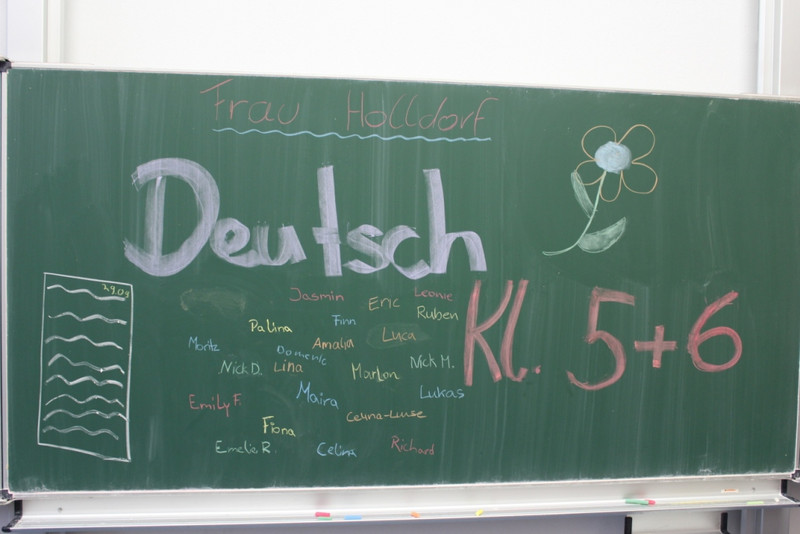 Frau Holldorf
Deutsch
29.09
Kl. 5+6
Jasmin Eric Leonie
Palina Finn Ruben
Moritz Domenic Amalia Luca
Nick D. Lina Marlon Nick M.
Emily F. Maira Lukas
Fiona
Emelie R. Celina Richard